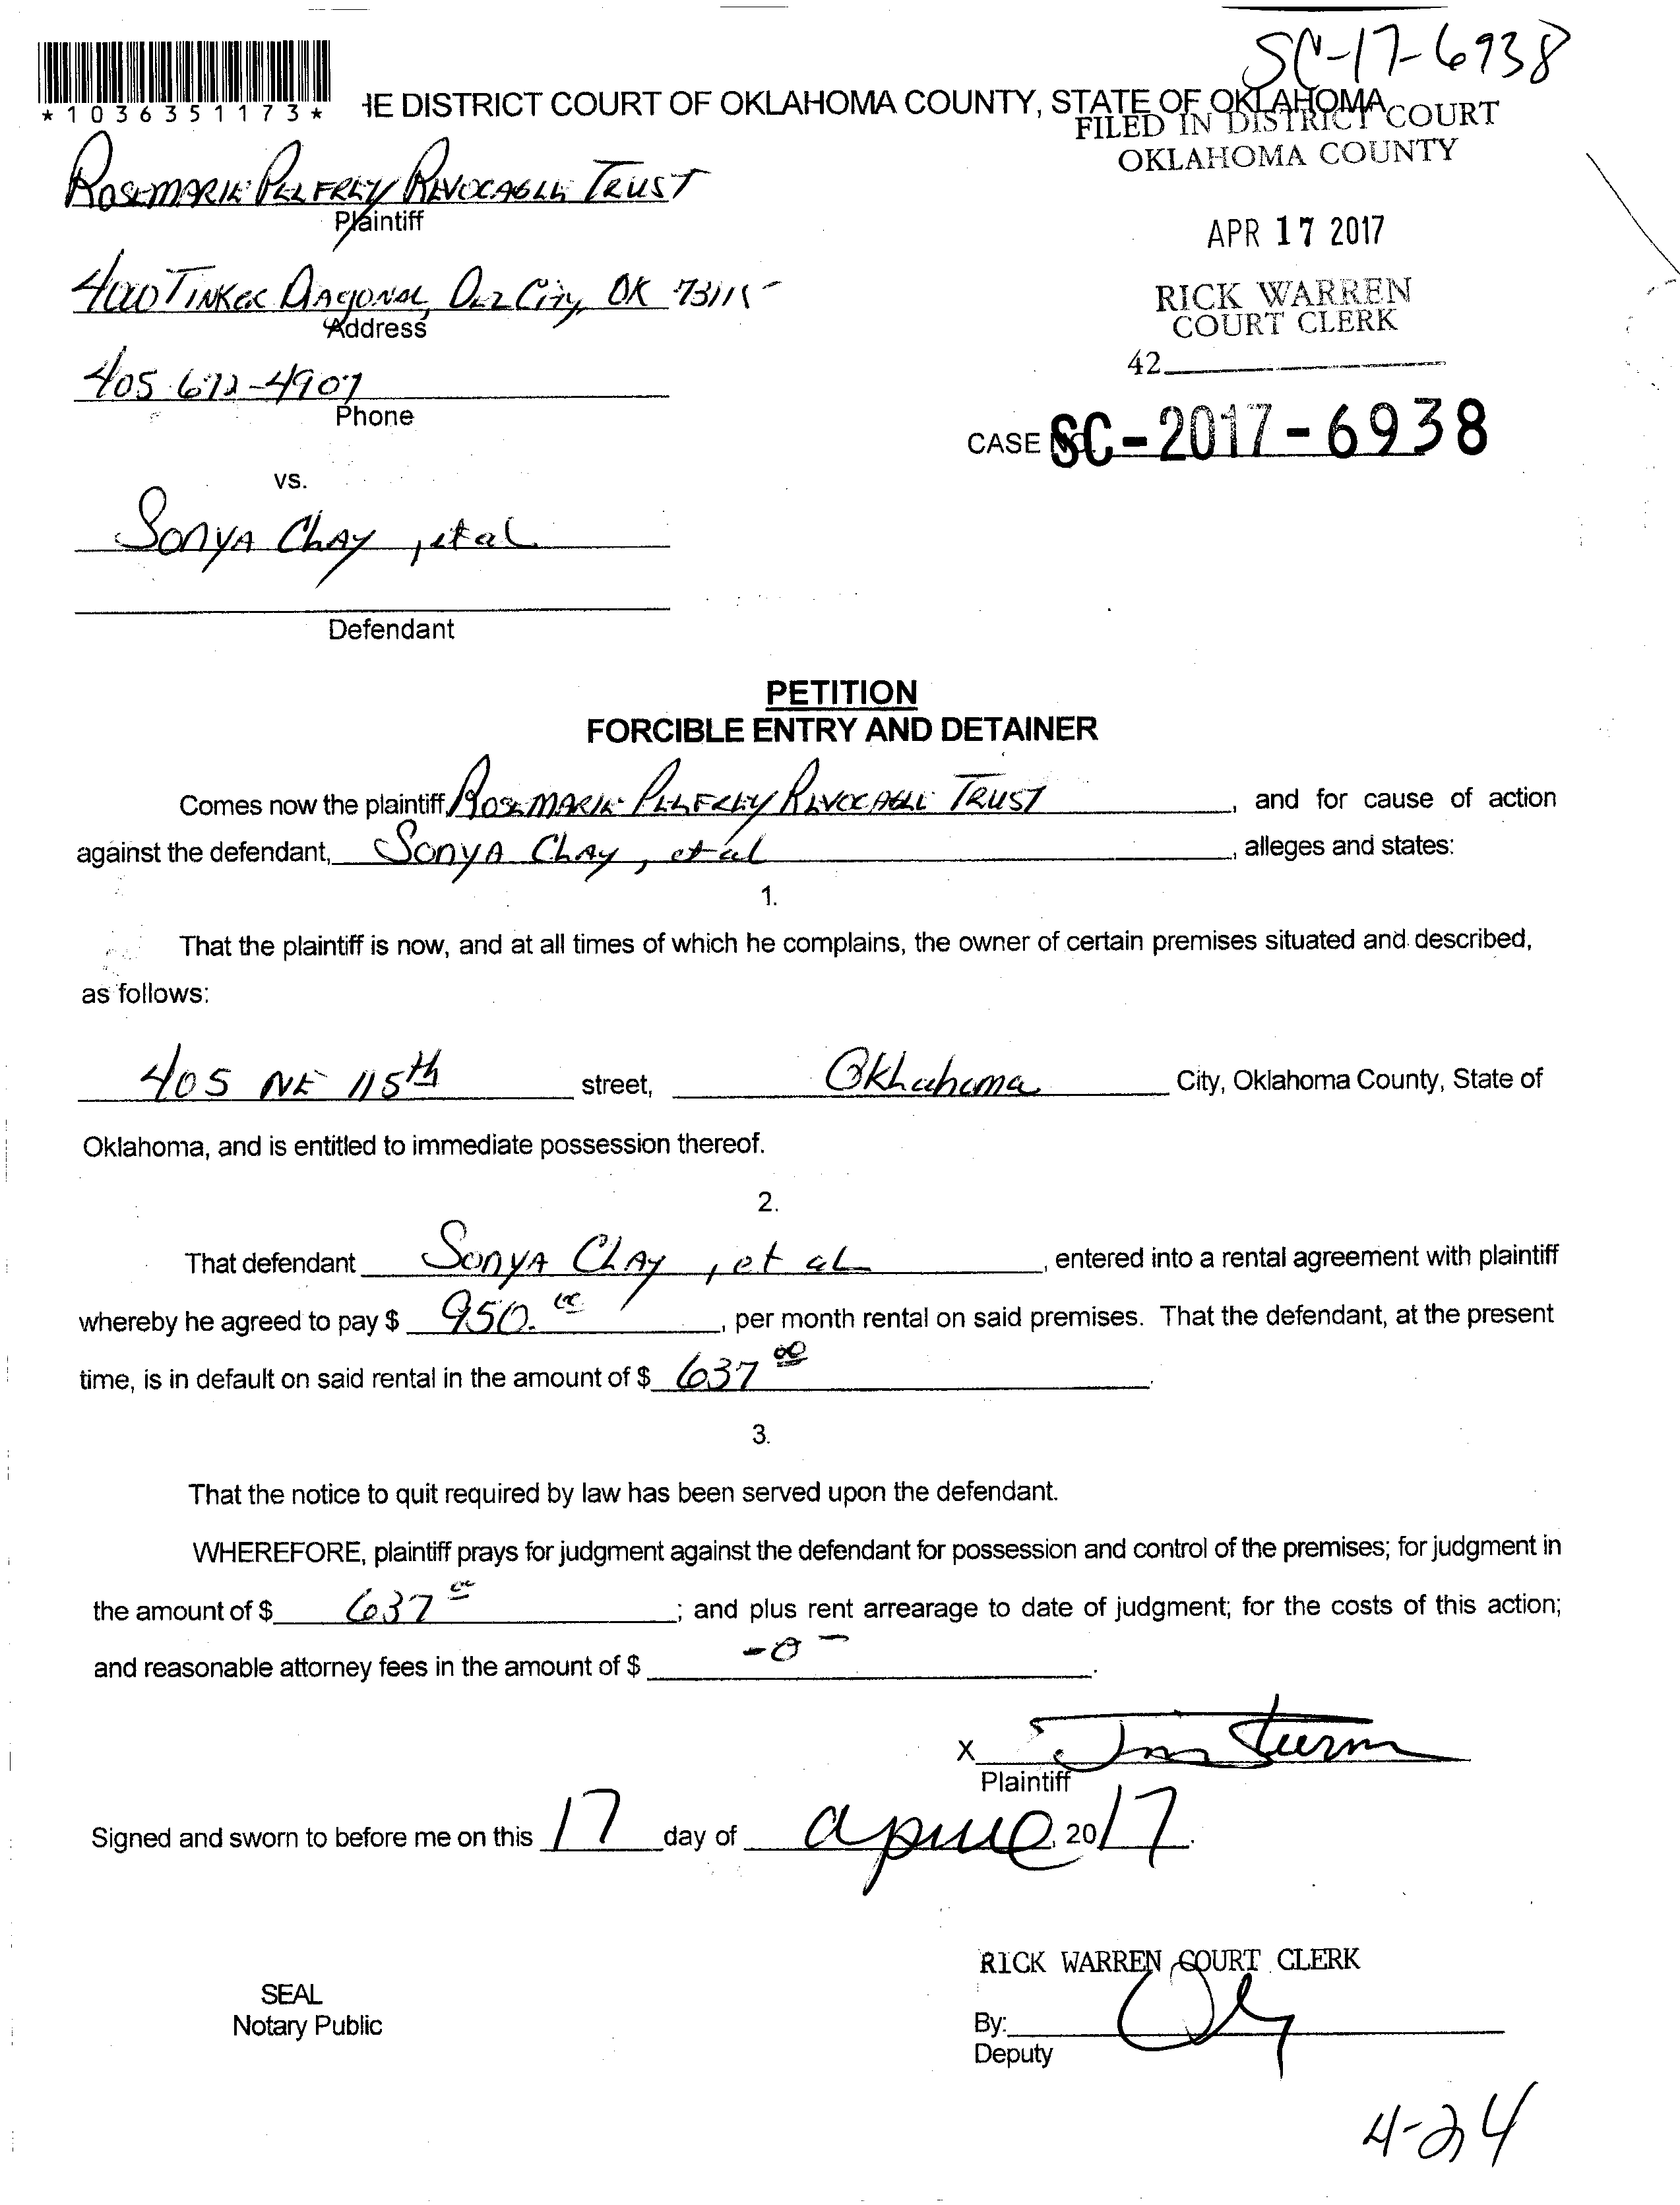 SC-17-6938
*1036351173*
HE DISTRICT COURT OF OKLAHOMA COUNTY, STATE OF OKLAHOMA
FILED IN DISTRICT COURT
OKLAHOMA COUNTY
ROSEMARIE PELFREY REVOCABLE TRUST
Plaintiff
APR 17 2017
4000 TINKER DIAGONAL, DEL CITY, OK 73115
Address
RICK WARREN
COURT CLERK
42
405 672-4907
Phone
CASE NO. SC-2017-6938
vs.
SONYA CLAY, et al
Defendant
PETITION
FORCIBLE ENTRY AND DETAINER
Comes now the plaintiff, ROSEMARIE PELFREY REVOCABLE TRUST, and for cause of action
against the defendant, SONYA CLAY, et al, alleges and states:
1.
That the plaintiff is now, and at all times of which he complains, the owner of certain premises situated and described,
as follows:
405 NE 115th street, Oklahoma City, Oklahoma County, State of
Oklahoma, and is entitled to immediate possession thereof.
2.
That defendant SONYA CLAY, et al, entered into a rental agreement with plaintiff
whereby he agreed to pay $ 950.00, per month rental on said premises. That the defendant, at the present
time, is in default on said rental in the amount of $ 637 00.
3.
That the notice to quit required by law has been served upon the defendant.
WHEREFORE, plaintiff prays for judgment against the defendant for possession and control of the premises; for judgment in
the amount of $ 637 00; and plus rent arrearage to date of judgment; for the costs of this action;
and reasonable attorney fees in the amount of $ -0-.
X Jim Sturm
Plaintiff
Signed and sworn to before me on this 17 day of april, 2017.
RICK WARREN COURT CLERK
SEAL
Notary Public
By:
Deputy
4-24